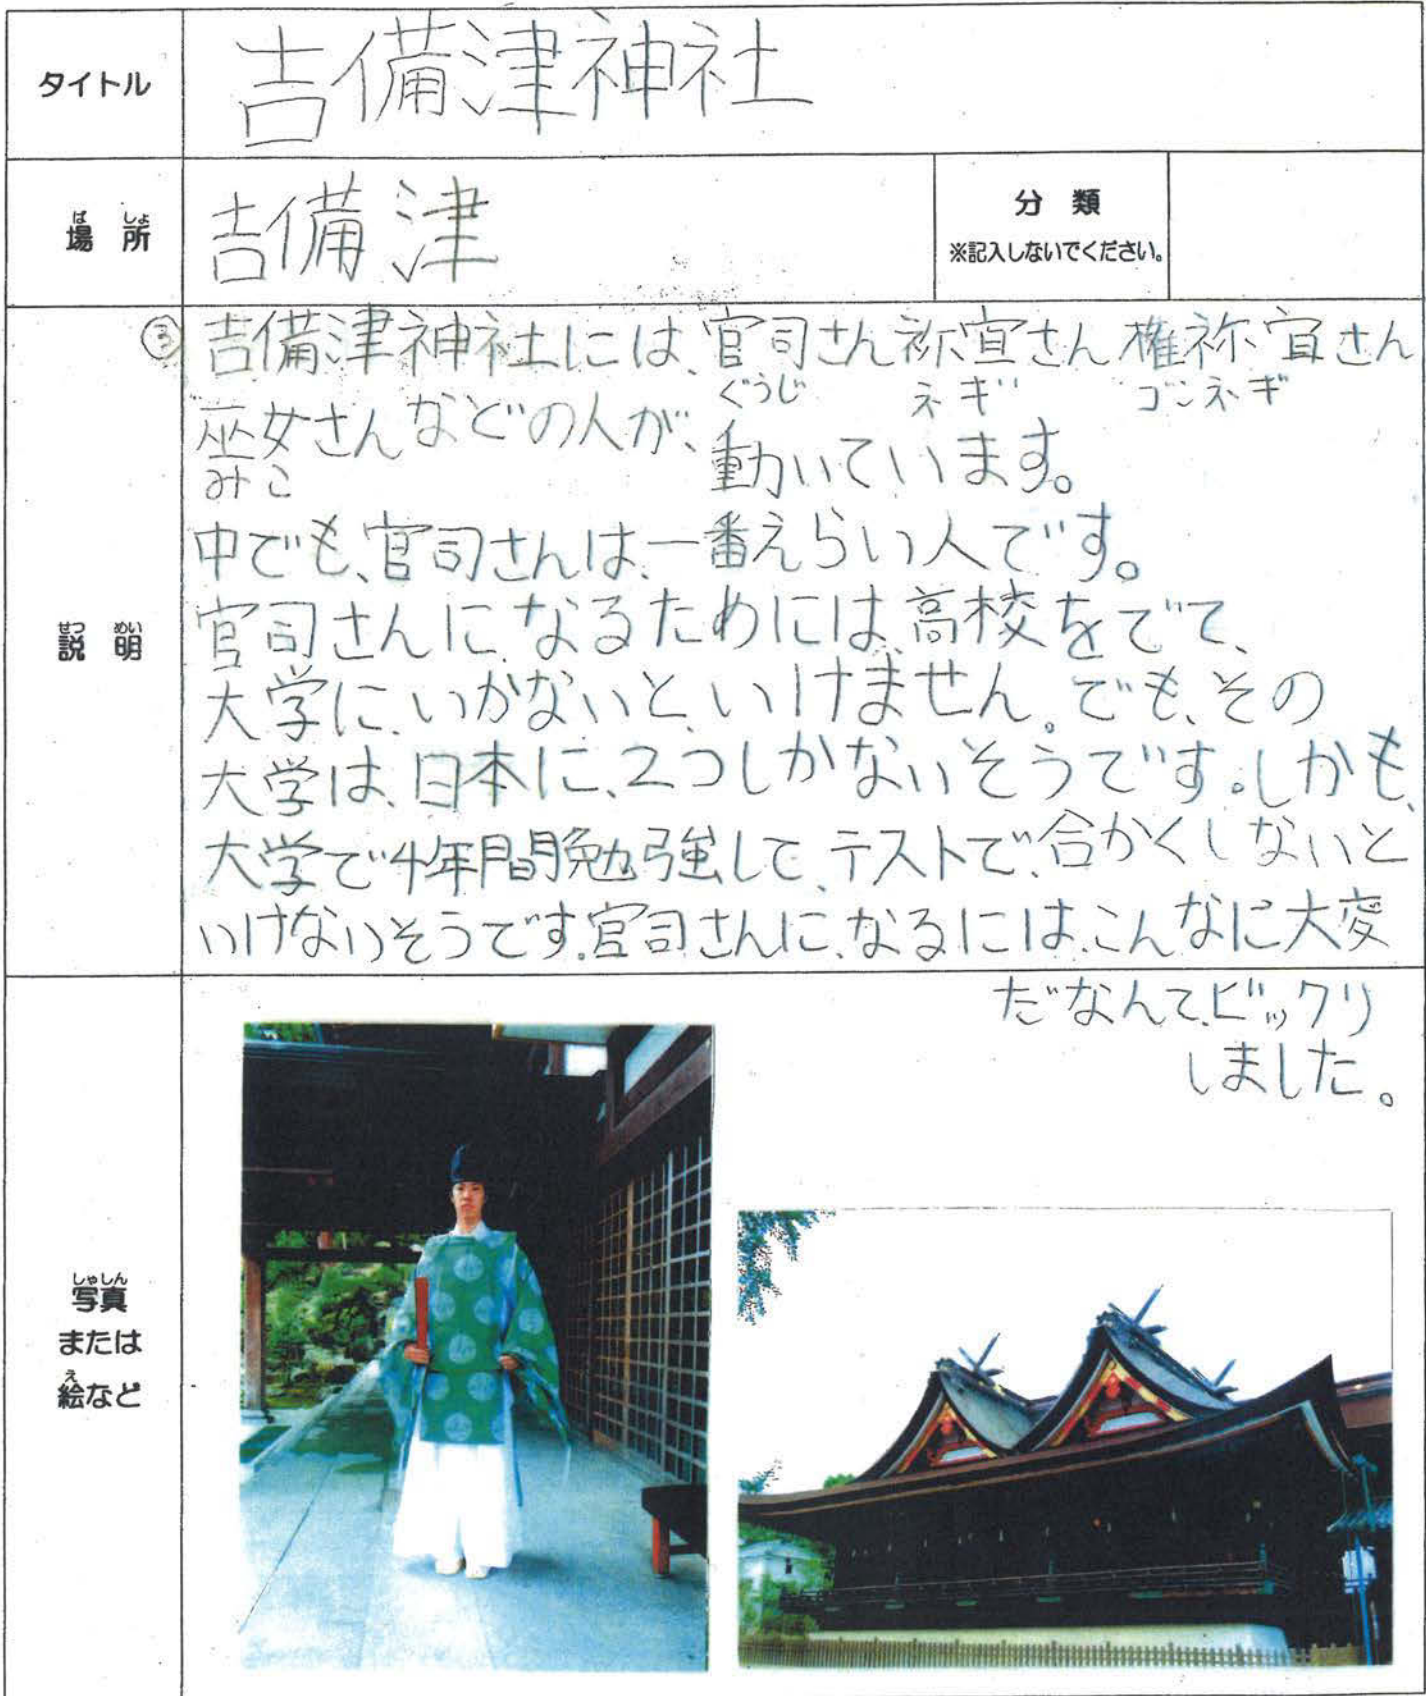 タイトル
吉備津神社
ば しょ
場 所
吉備津
分 類
※記入しないでください。
せつ めい
説 明
③ 吉備津神社には、官司さん祢宜さん権祢宜さん
ぐうじ ネギ ゴンネギ
巫女さんなどの人が、動いています。
みこ
中でも、官司さんは、一番えらい人です。
官司さんに、なるためには、高校をでて、
大学に、いかないと、いけません。でも、その
大学は、日本に、2つしかないそうです。しかも、
大学で4年間勉強して、テストで、合かくしないと
いけないそうです。官司さんに、なるには、こんなに大変
だなんて、ビックリ
しました。
しゃしん
写真
または
え
絵など